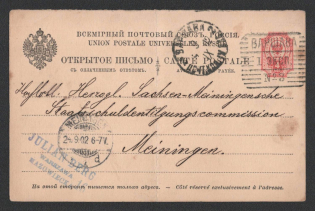 ВСЕМІРНЫЙ ПОЧТОВЫЙ СОЮЗЪ. РОССІЯ.
UNION POSTALE UNIVERSELLE. RUSSIE.
ОТКРЫТОЕ ПИСЬМО — CARTE POSTALE
СЪ ОПЛАЧЕННЫМЪ ОТВѢТОМЪ. AVEC RÉPONSE PAYÉE.
ВАРШАВА
Herzogl. Sachsen-Meiningensche
Staatsschuldentilgungscommission
Meiningen.
24.9.02 6-7
JULIAN BERG
WARSZAWA
На этой сторонѣ пишется только адресъ. — Côté réservé exclusivement à l'adresse.